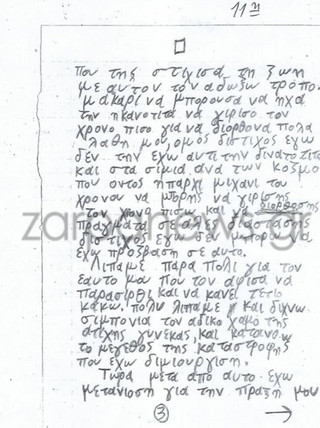 11η
που της στιχισα τη ζωη
με αυτον τον αδωξω τροπο.
μακαρι να μπορουσα να ηχα
την ηκανοτιτα να γιρισο τον
χρονο πισο για να διορθονα πολα
λαθη μου, ομος διστιχος εγω
δεν την εχω αυτι την δινατοτιτα
και στα σιμια ανα των κοσμο
που οντος ηπαρχι μιχανι του
χρονου να μπορης να γιρισης
τον χρονο πισω και να διορθοσης
πραγματα σε αλες διαστασης
διστιχος εγω δεν μπορο να
εχω προσβαση σε αυτο.
Λιπαμε παρα πολι για τον
εαυτο μου που τον αφισα να
παρασιρθι και να κανει τετιο
κακω. πολυ λιπαμε και διχνω
σιμπονια τον αδικο χαμο της
ατιχης γυνεκας, και κατανοω
το μεγεθος της καταστροφης
που εχω διμιουργιση.
Τωρα μετα απο αυτο εχω
μετανιοση για την πραξη μου
3
zarpanews.gr